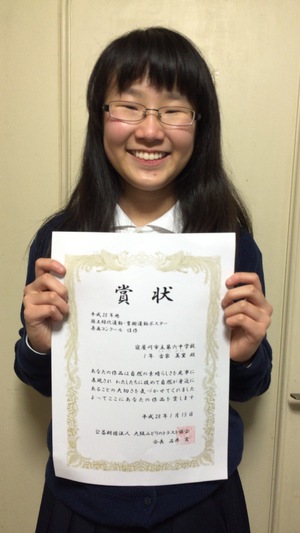 賞状
平成28年用
国土緑化運動・育樹運動ポスター
原画コンクール 佳作
寝屋川市立第六中学校
1年 古家 美里 殿
あなたの作品は自然の素晴らしさを見事に
表現され わたしたちに改めて自然が身近に
あることの大切さを気づかせてくれました
よってここにあなたの作品を賞します
平成28年1月15日
公益財団法人 大阪みどりのトラスト協会
会長